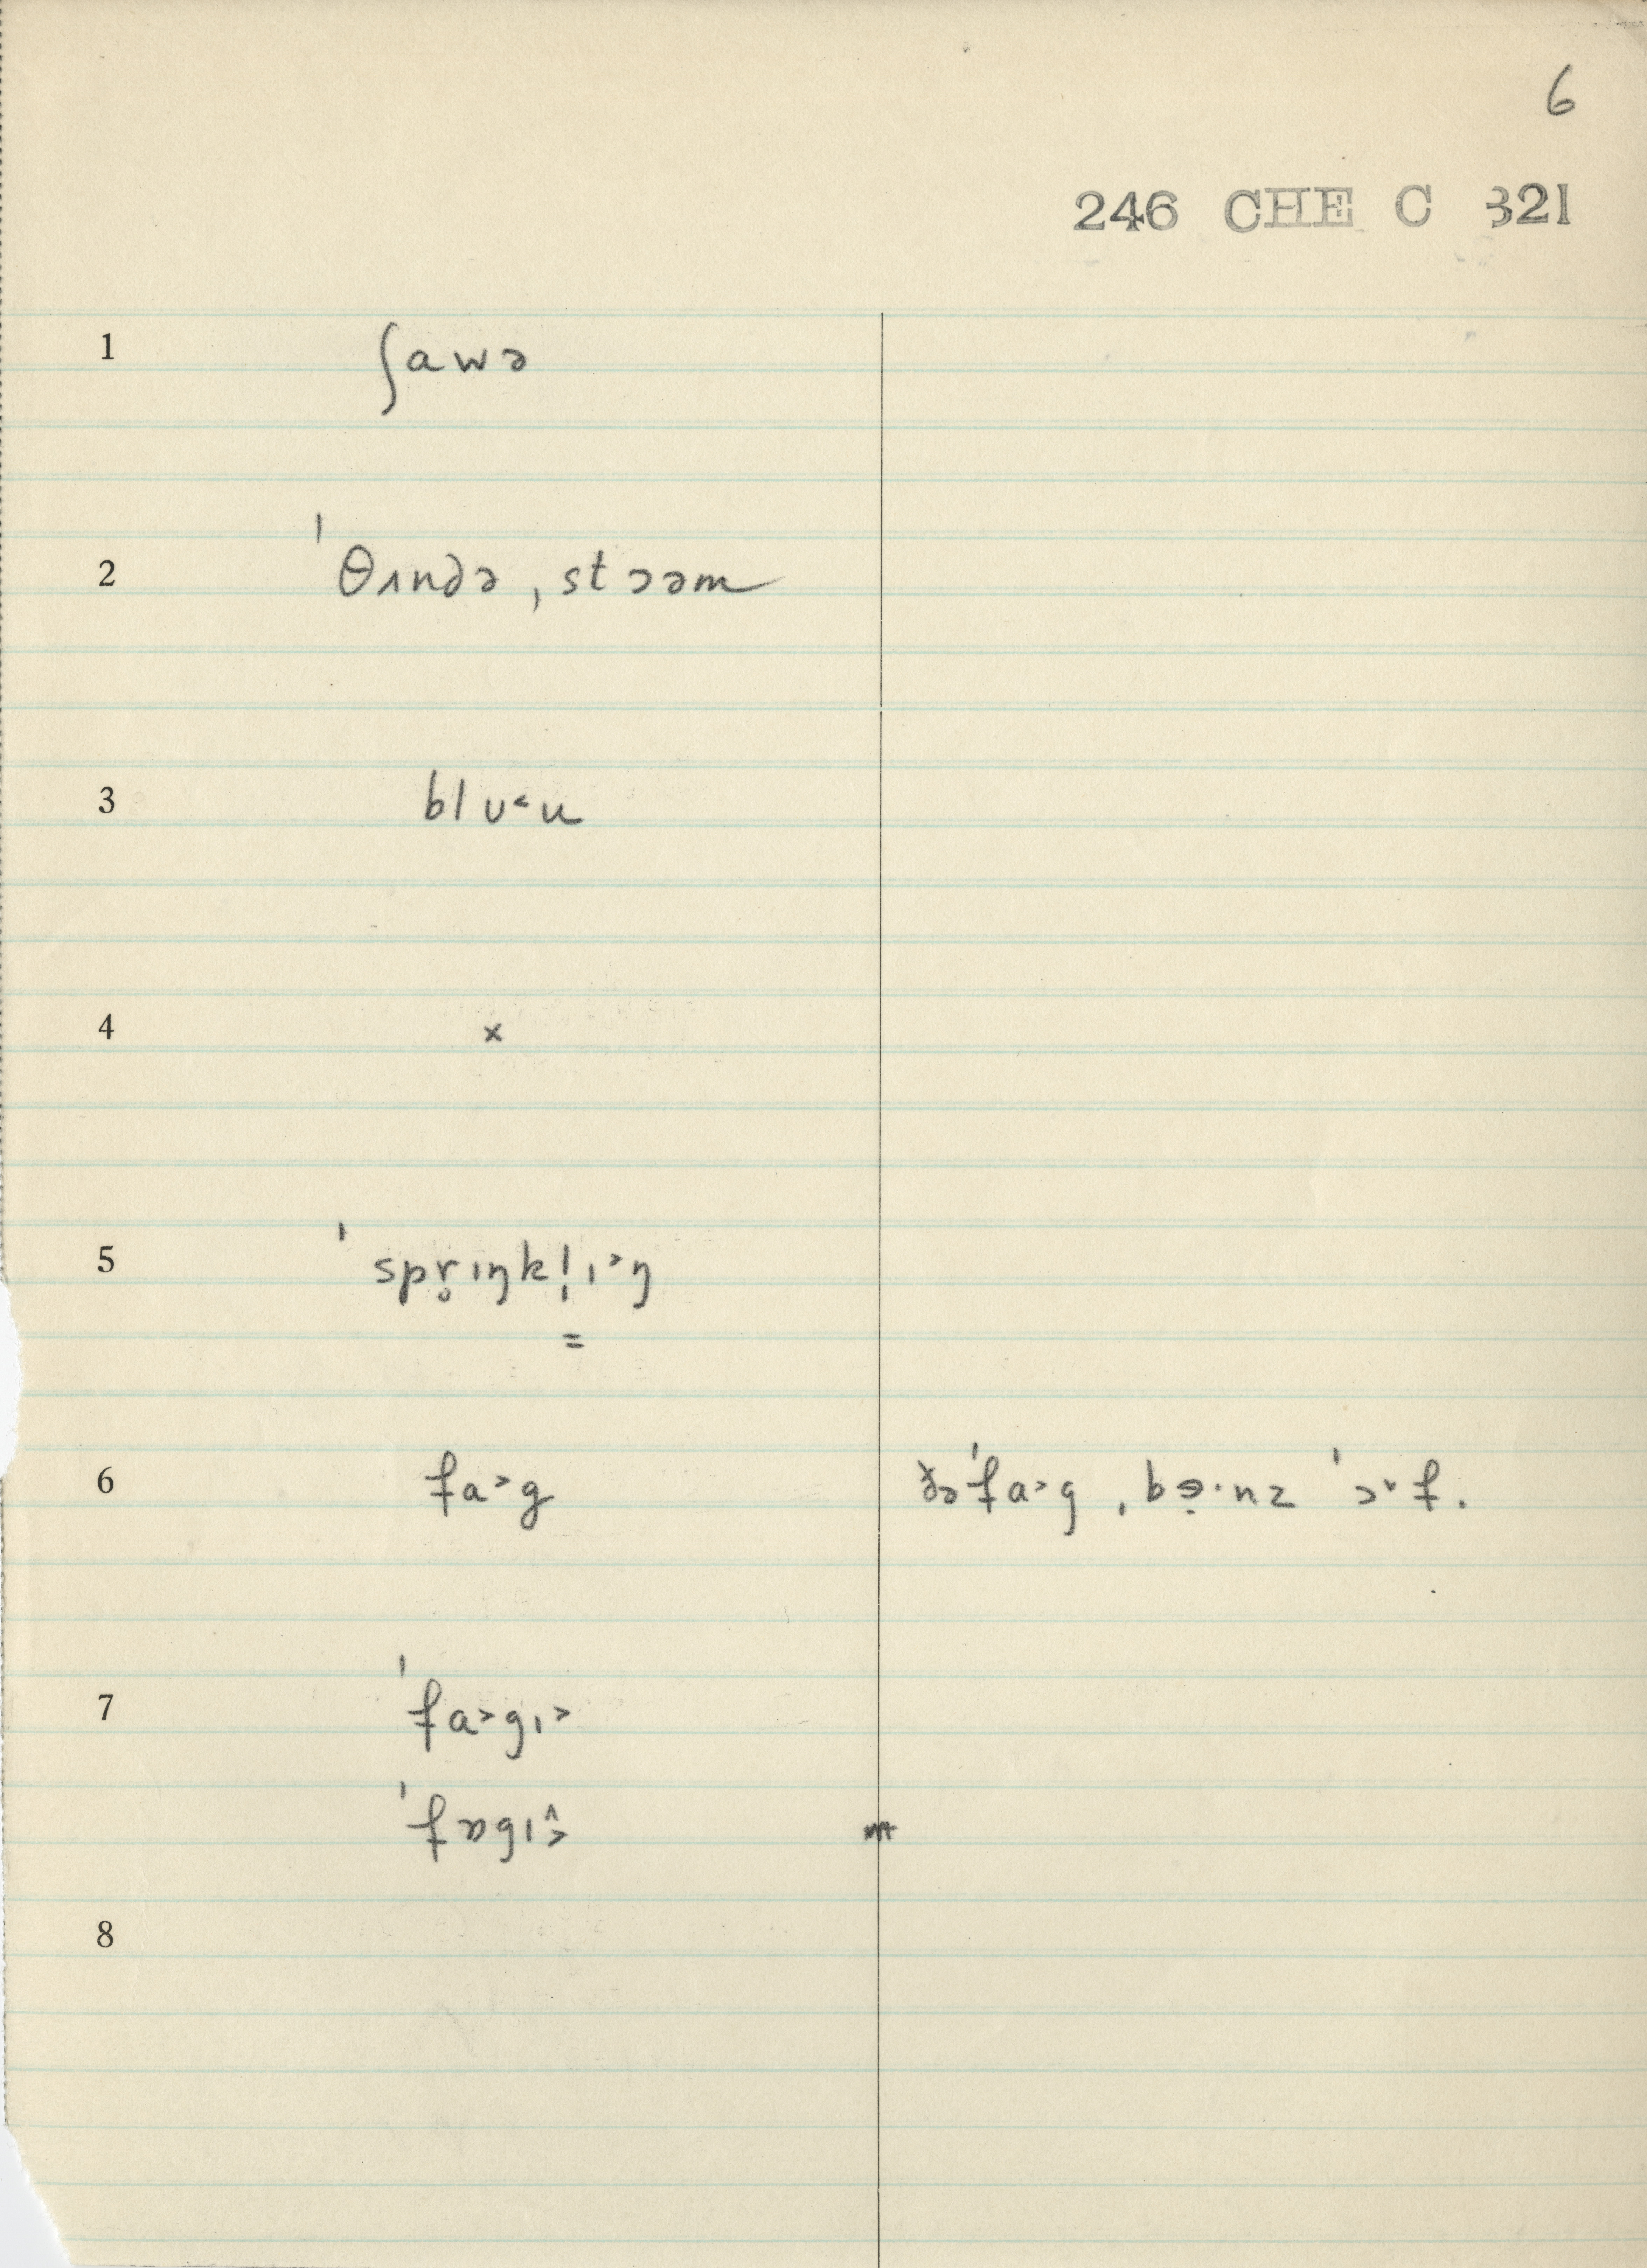 6
246 CHE C 321
1 ʃawə
2 ˈθʌndə ˌstɔəm
3 blʊ˂u
4 ×
5 ˈspr̥ɪŋkl̩ɪ˃ŋ
=
6 fa˃g ðəˈfa˃g ˌbə̣·nz ˈɔ˅f.
7 ˈfa˃gɪ˃
ˈfɒgɪ˄˃
8